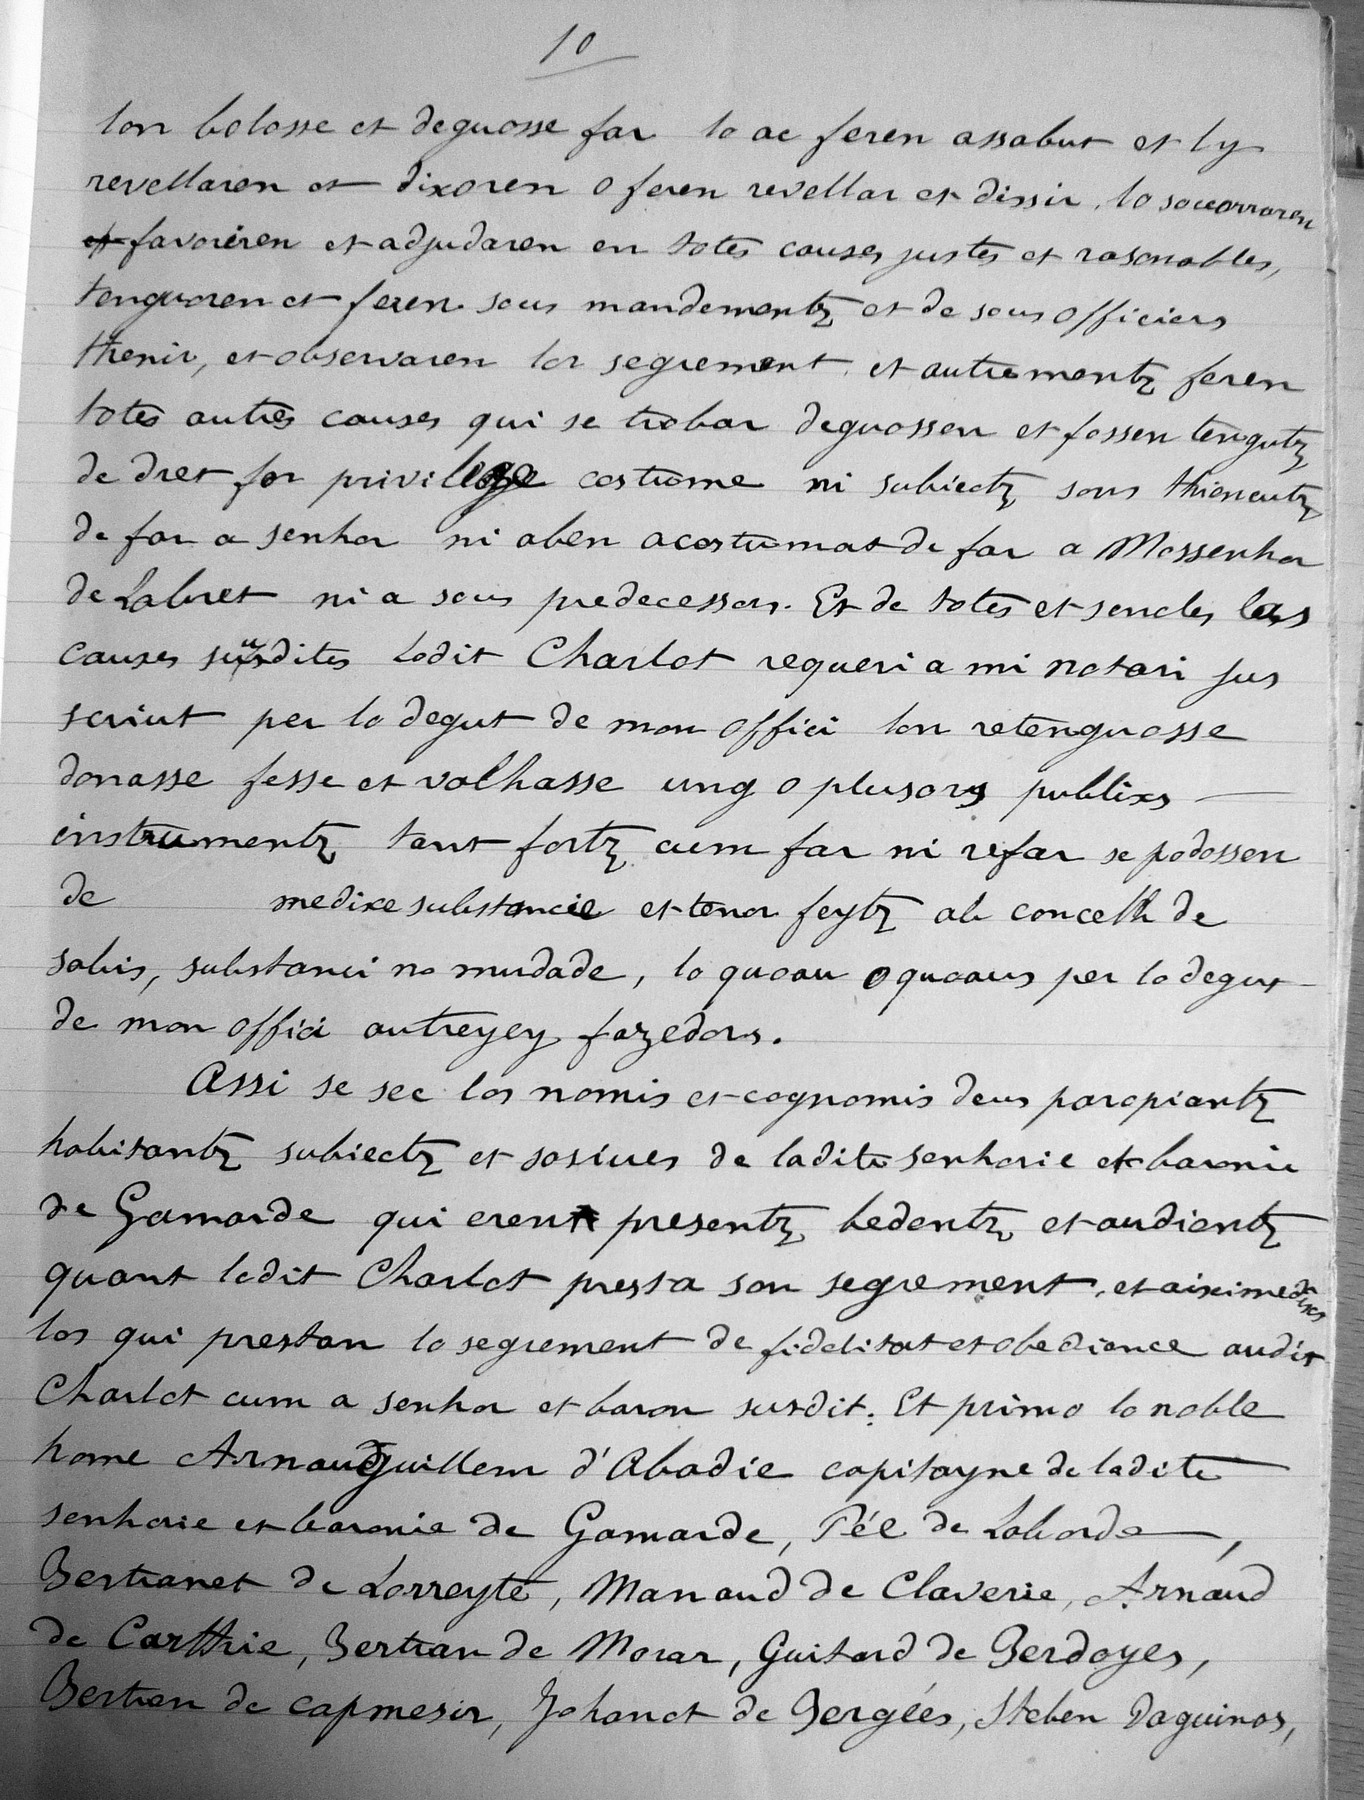 10
lon bolosse et deguosse far lo ac feren assabut et ly
revellaren et dixoren o feren revellar et dissir, lo socorraren
favoriren et adjudaren en totes causes justes et rasonables,
tenguoren et feren sous mandementz et de sous officiers
thenir, et observaren lor segrement et autrementz feren
totes autres causes qui se trobar deguossen et fossen tengutz
de dret for privilege costume ni subiectz sous thienentz
de far a senhor ni aben acostumat de far a Mossenhor
de Labret ni a sous predecessors. Et de totes et sencles las
causes susdites lodit Charlot requeri a mi notari jus
scriut per lo degut de mon offici lon retenguosse
donasse fesse et valhasse ung o plusors publixs
instrumentz tant fortz cum far ni refar se podossen
de medixe substancie et tenor feytz ab conceth de
sabis, substanci no mudade, lo quoau o quoaus per lo degut
de mon offici autreyey fazedors.
Assi se sec los nomis et cognomis deus paropiantz
habitantz subiectz et sosiues de ladite senhorie et baronie
de Gamarde qui eren presentz bedentz et audientz
quant lodit Charlot presta son segrement, et aixi medixes
los qui prestan lo segrement de fidelitat et obedience audit
Charlot cum a senhor et baron susdit. Et primo lo noble
home Arnaud Guillem d'Abadie capitayne de ladite
senhorie et baronie de Gamarde, Pée de Laborde,
Bertranet de Lorreyte, Manaud de Claverie, Arnaud
de Carthie, Bertran de Morar, Guitard de Berdoyes,
Bertran de capmesir, Johanot de Bergées, Steben Daguinos,